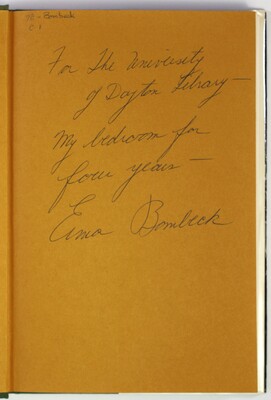 Bombeck
For The University
of Dayton Library—
My bedroom for
four years—
Erma Bombeck